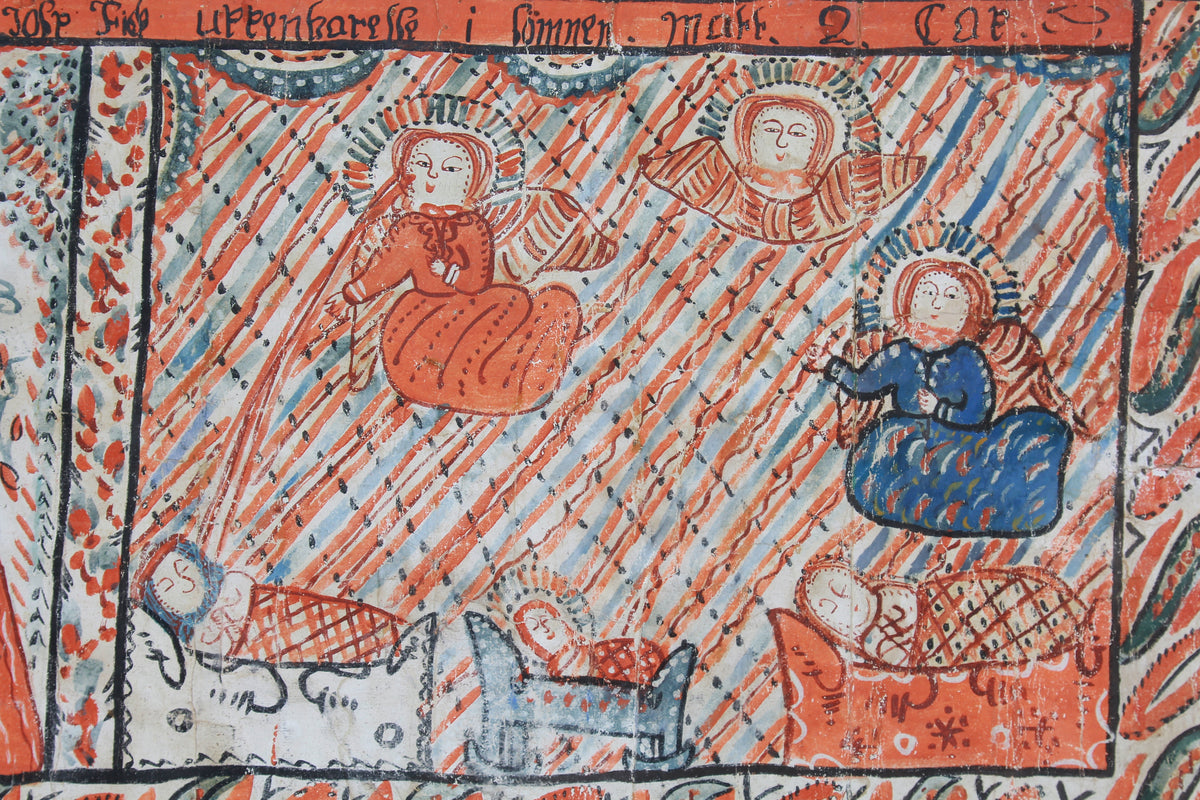 Josp Fick Uppenbarelse i sömnen. Matt. 2. Cap.